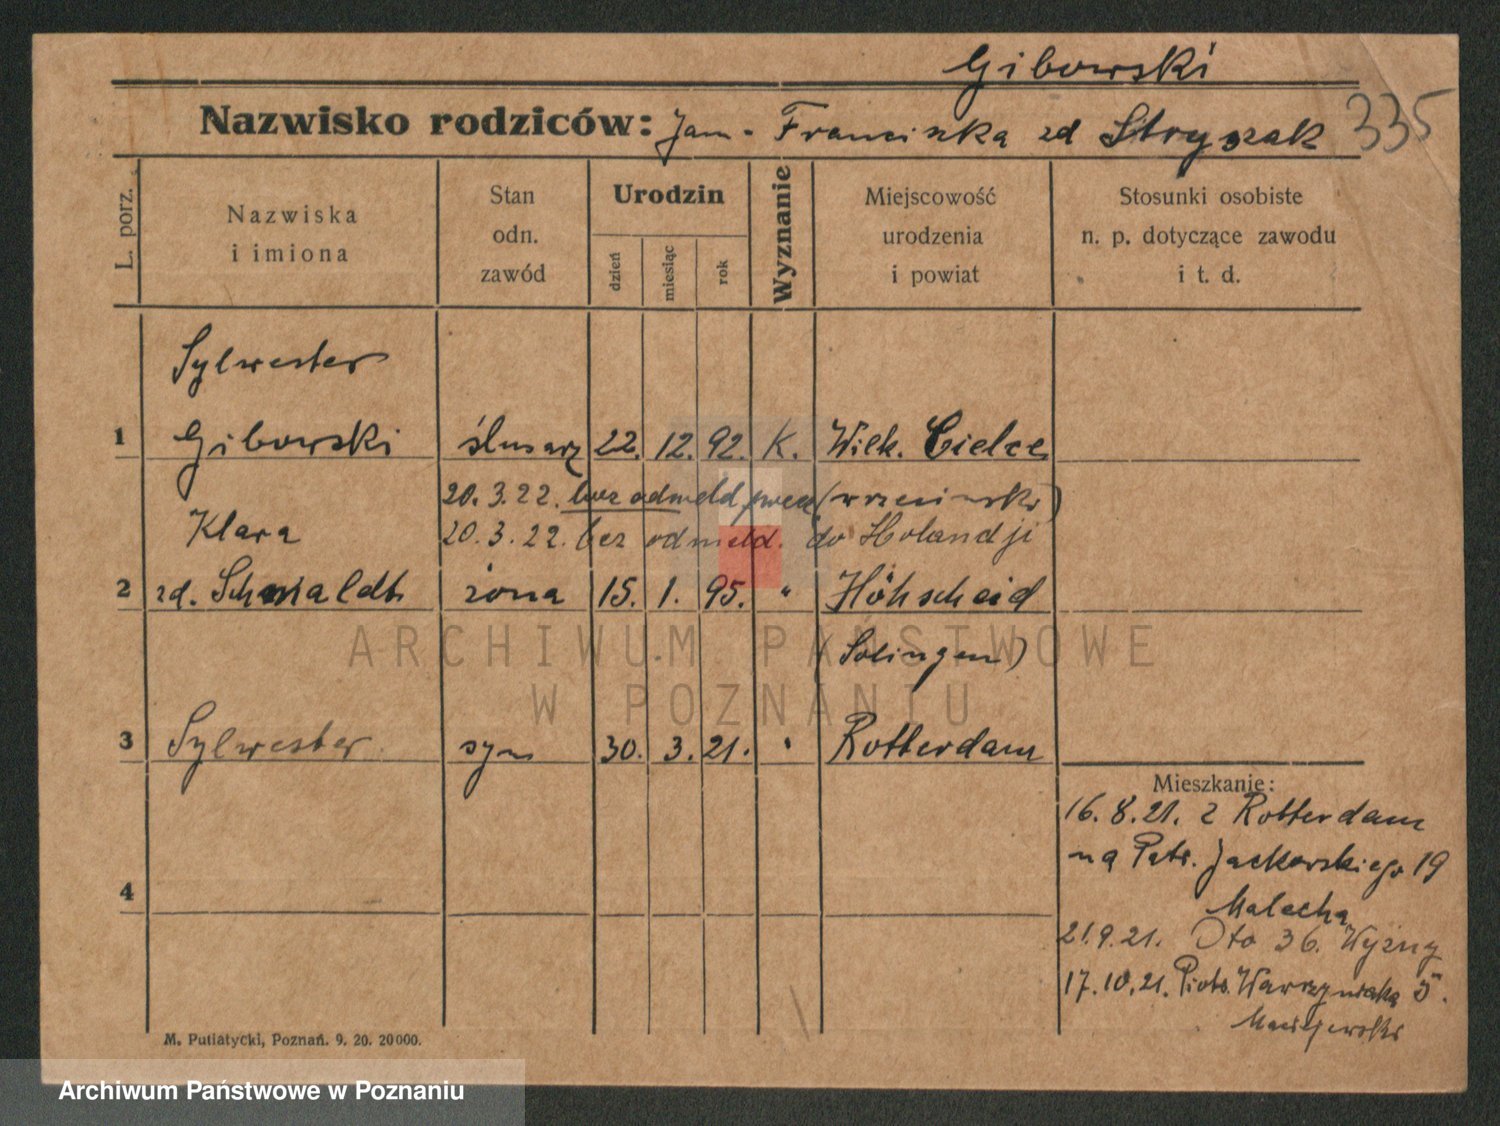 Gibowski
Nazwisko rodziców: Jan - Franciszka zd Stryszak 335
L. porz.
Nazwiska
i imiona
Stan
odn.
zawód
Urodzin
dzień
miesiąc
rok
Wyznanie
Miejscowość
urodzenia
i powiat
Stosunki osobiste
n. p. dotyczące zawodu
i t. d.
Sylwester
1 Gibowski ślusarz 22. 12. 92. K. Wielk. Cielcz
20. 3. 22. bez odmeld. (wrzesiński)
Klara 20. 3. 22. bez odmeld. do Holandji
2 zd. Schmaldt żona 15. 1. 95. " Höhscheid
(Solingen)
3 Sylwester syn 30. 3. 21. " Rotterdam
Mieszkanie:
16. 8. 21. z Rotterdam
na Patr. Jackowskiego 19
Malecha
4
21. 9. 21. Oto 36. Wyzuy
17. 10. 21. Piotr. Wawrzyniaka 5.
Maciejewski
M. Putiatycki, Poznań. 9. 20. 20000.
ARCHIWUM PAŃSTWOWE
W POZNANIU
Archiwum Państwowe w Poznaniu